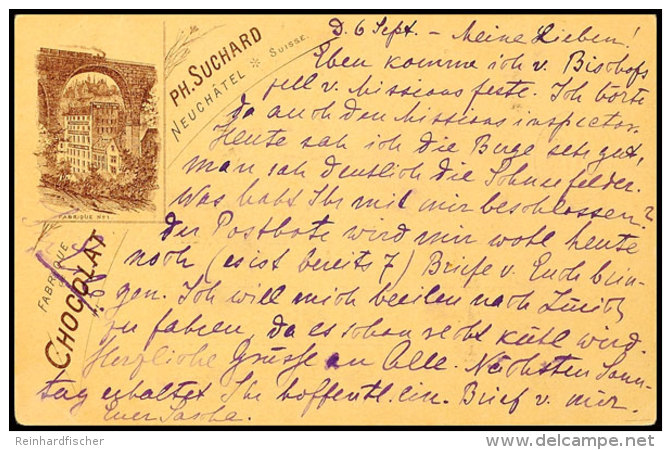 D. 6 Sept. – Meine Lieben!
Eben komme ich v. Bischofs
zell v. Missionsfeste. Ich hörte
da auch den Missionsinspector.
Heute sah ich die Berge sehr gut,
man sah deutlich die Schneefelder.
Was habt Ihr mit mir beschlossen?
Der Postbote wird mir wohl heute
noch (es ist bereits 7) Briefe v. Euch brin-
gen. Ich will mich beeilen nach Zürich
zu fahren, da es schon recht kühl wird.
Herzliche Grüsse an Alle. Nächsten Sonn-
tag erhaltet Ihr hoffentl. ein. Brief v. mir.
Euer Sascha.
PH. SUCHARD
NEUCHÂTEL * SUISSE.
FABRIQUE No 1
FABRIQUE
DE
CHOCOLAT
Reinhardfischer
delcampe.net